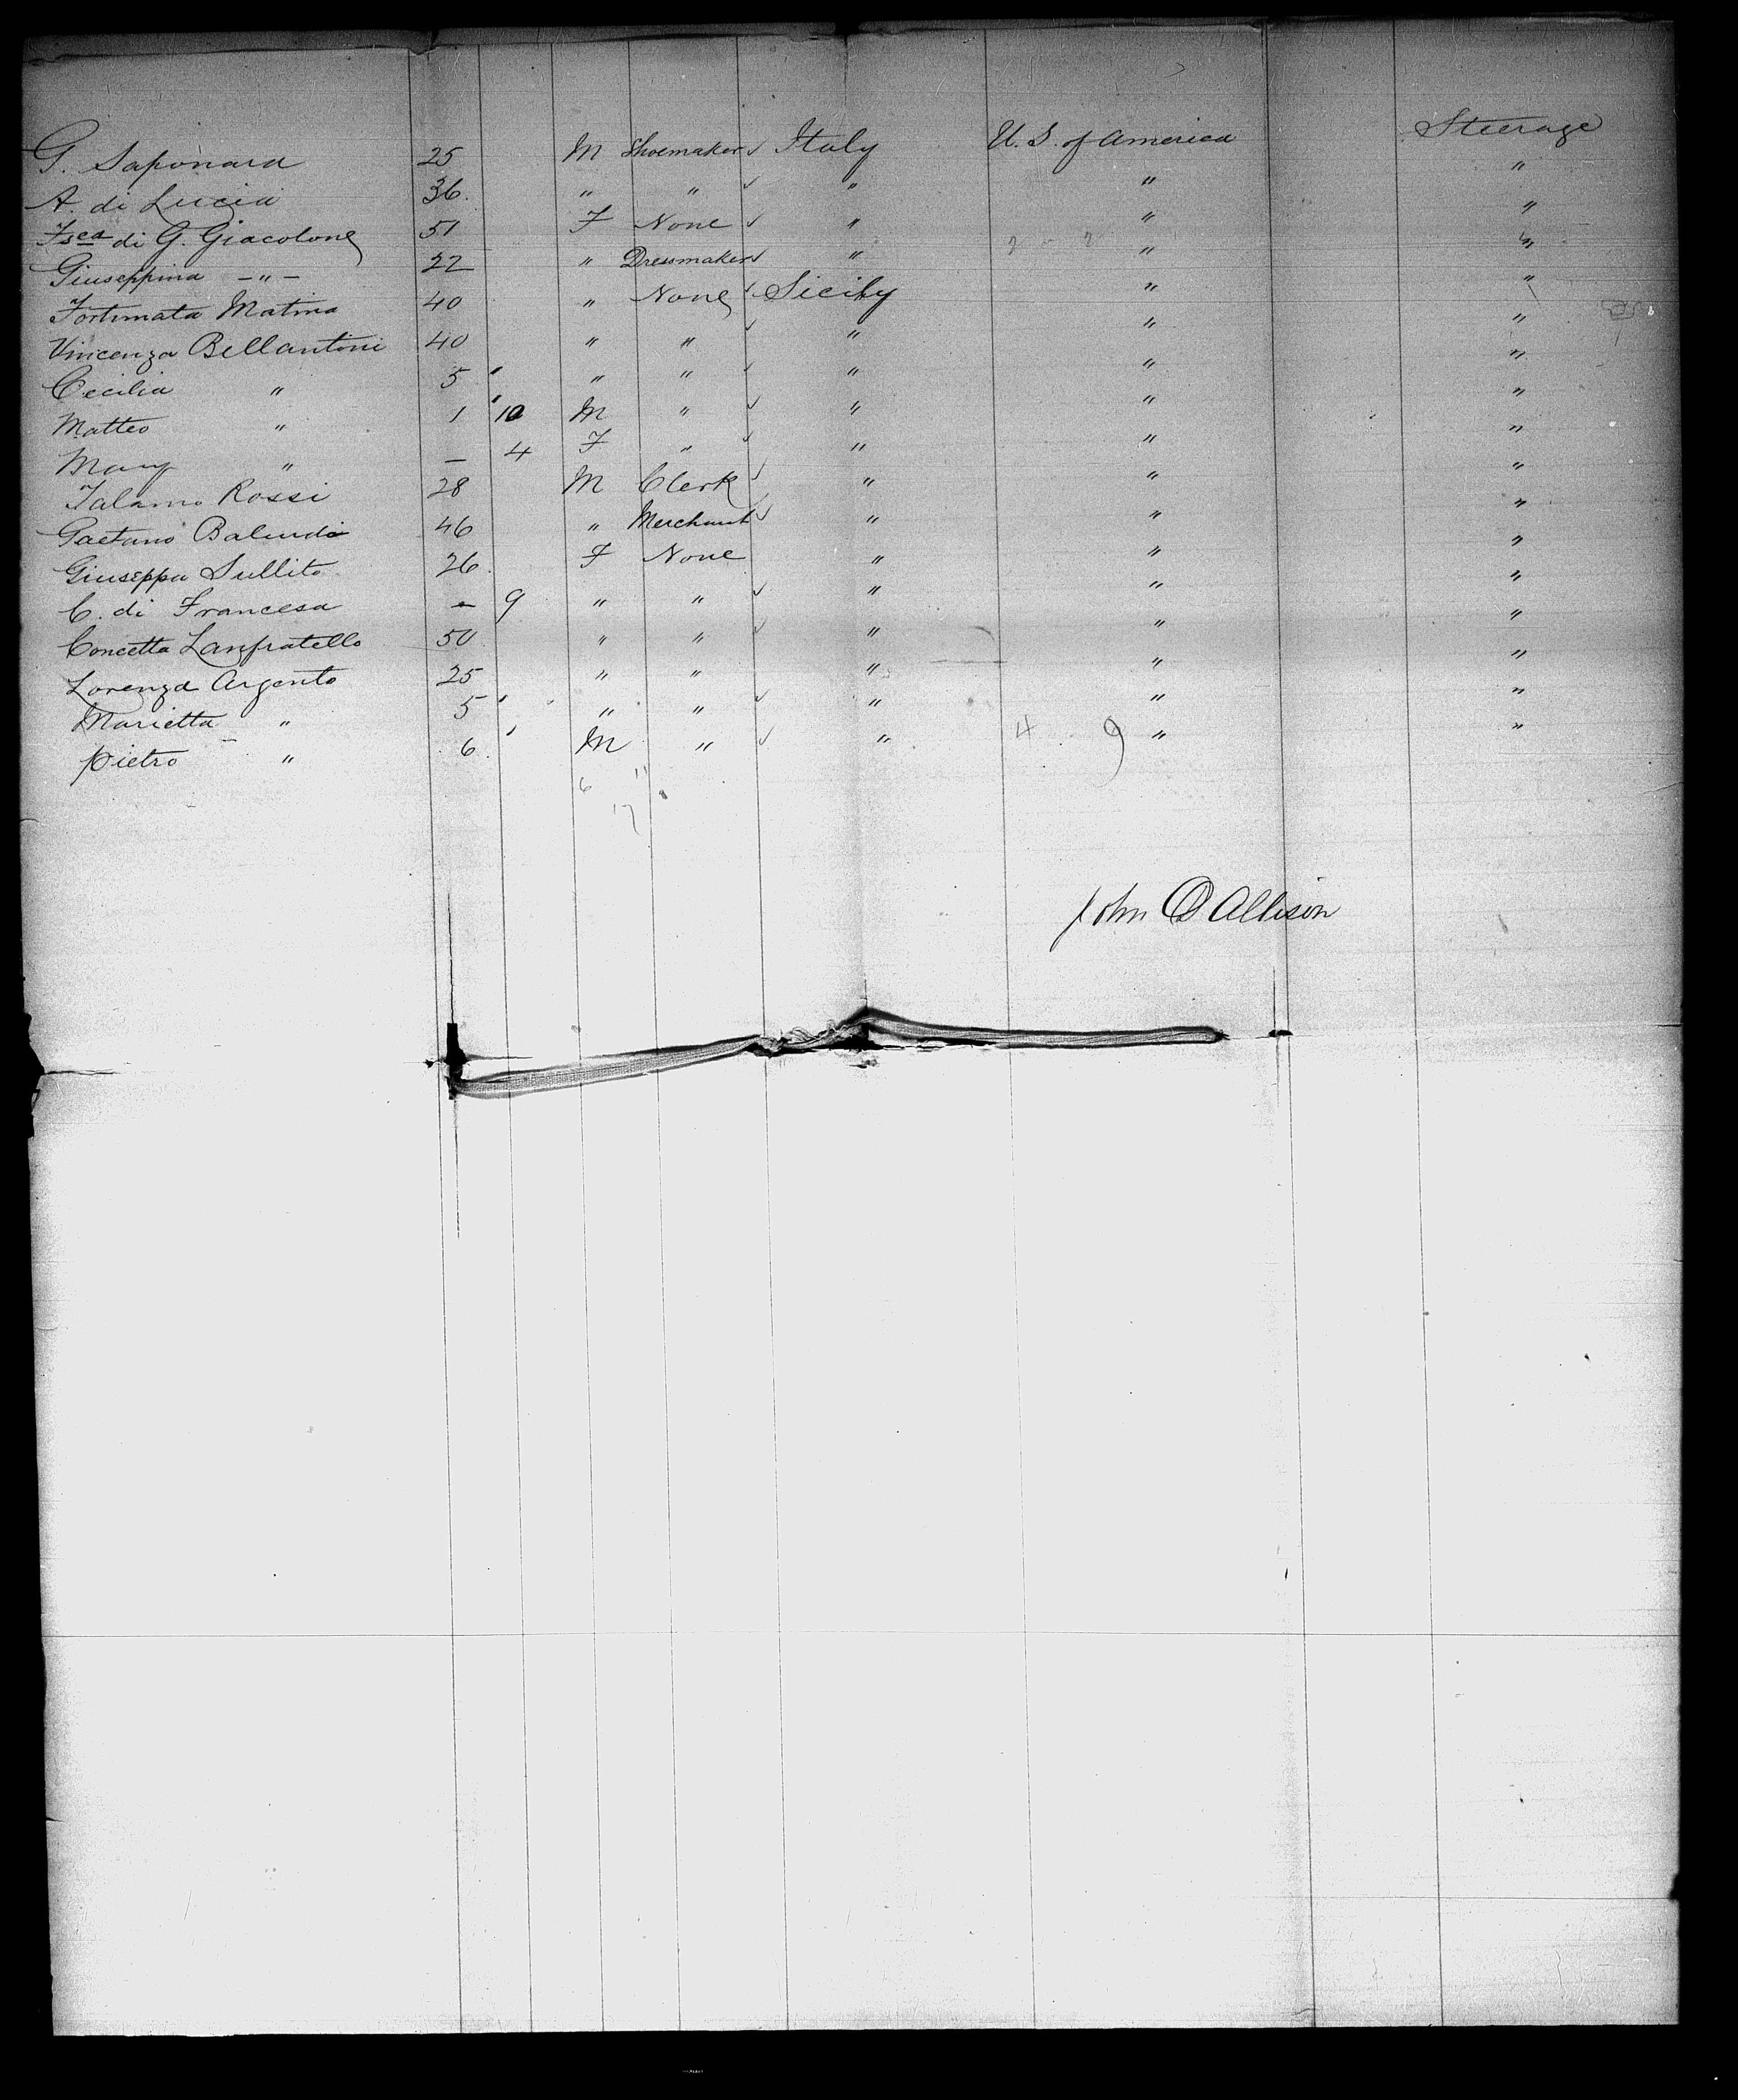 G. Saponara 25 M Shoemaker ✓ Italy U. S. of America Steerage
A. di Lucia 36. " " ✓ " " "
Fsca di G. Giacolone 51 F None ✓ " " "
Giuseppina —"— 22 " Dressmaker ✓ " " "
Fortunata Matina 40 " None ✓ Sicily " "
Vincenza Bellantoni 40 " " ✓ " " "
Cecilia " 5 " " ✓ " " "
Matteo " 1 10 M " ✓ " " "
Mary " — 4 F " ✓ " " "
Talamo Rossi 28 M Clerk ✓ " " "
Gaetano 46 " Merchant ✓ " " "
Giuseppa Sullito 26. F None " " "
C. di Francesa — 9 " " ✓ " " "
Concetta Lanfratello 50 " " ✓ " " "
Lorenza Argento 25 " " " " "
Marietta " 5 " " ✓ " " "
Pietro " 6. M " ✓ " 4 9 " "
6 11
17
John D Allison